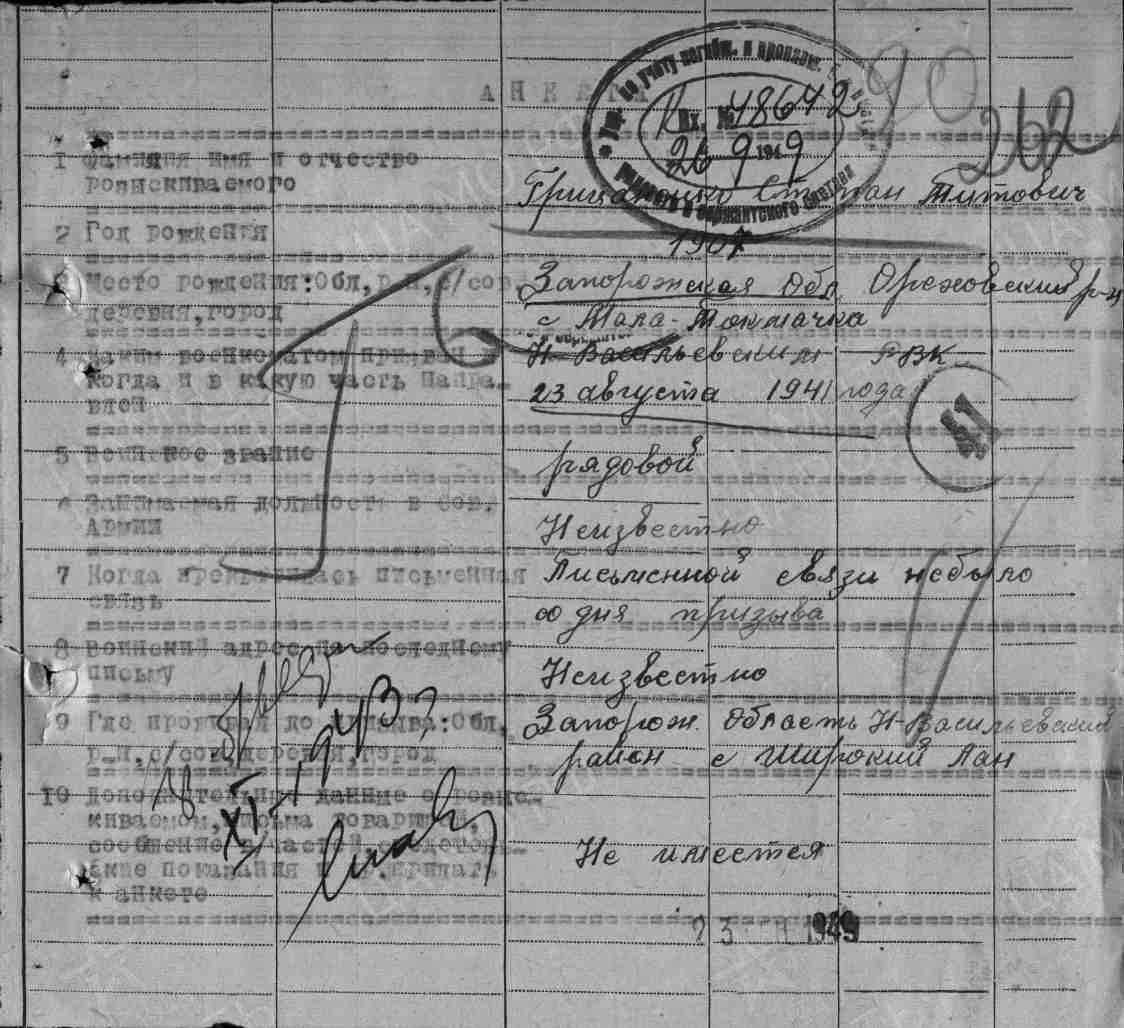 90
262
АНКЕТА
Упр. по учету погибш. и пропавш. без вести
Вх. № 48642
26 9 1949
рядового и сержантского состава
1 Фамилия имя и отчество
розыскиваемого
Грицаненко Степан Титович
2 Год рождения
1901
3 Место рождения:Обл,р-н,с/сов,
деревня,город
Запорожская Обл, Ореховский р-н
с Мала-Токмачка
4 Каким военкоматом призван
когда и в какую часть Напра-
влен
Н Васильевским РВК
23 августа 1941 года
41
5 Воинское звание
рядовой
6 Занимаемая должность в Сов.
Армии
Неизвестно
7 Когда прекратилась письменная
связь
Письменной связи небыло
со дня призыва
8 Воинский адрес по последнему
письму
Неизвестно
9 Где проживал до призыва:Обл,
р-н,с/сов,деревня,город
Запорож. Область Н-Васильевский
район с Широкий Лан
10 Дополнительные данные о розыс-
киваемом, письма товарищей,
сообщение в/частей, свидетель-
ские показания и др.придать
к анкете
Не имеется
23 1949